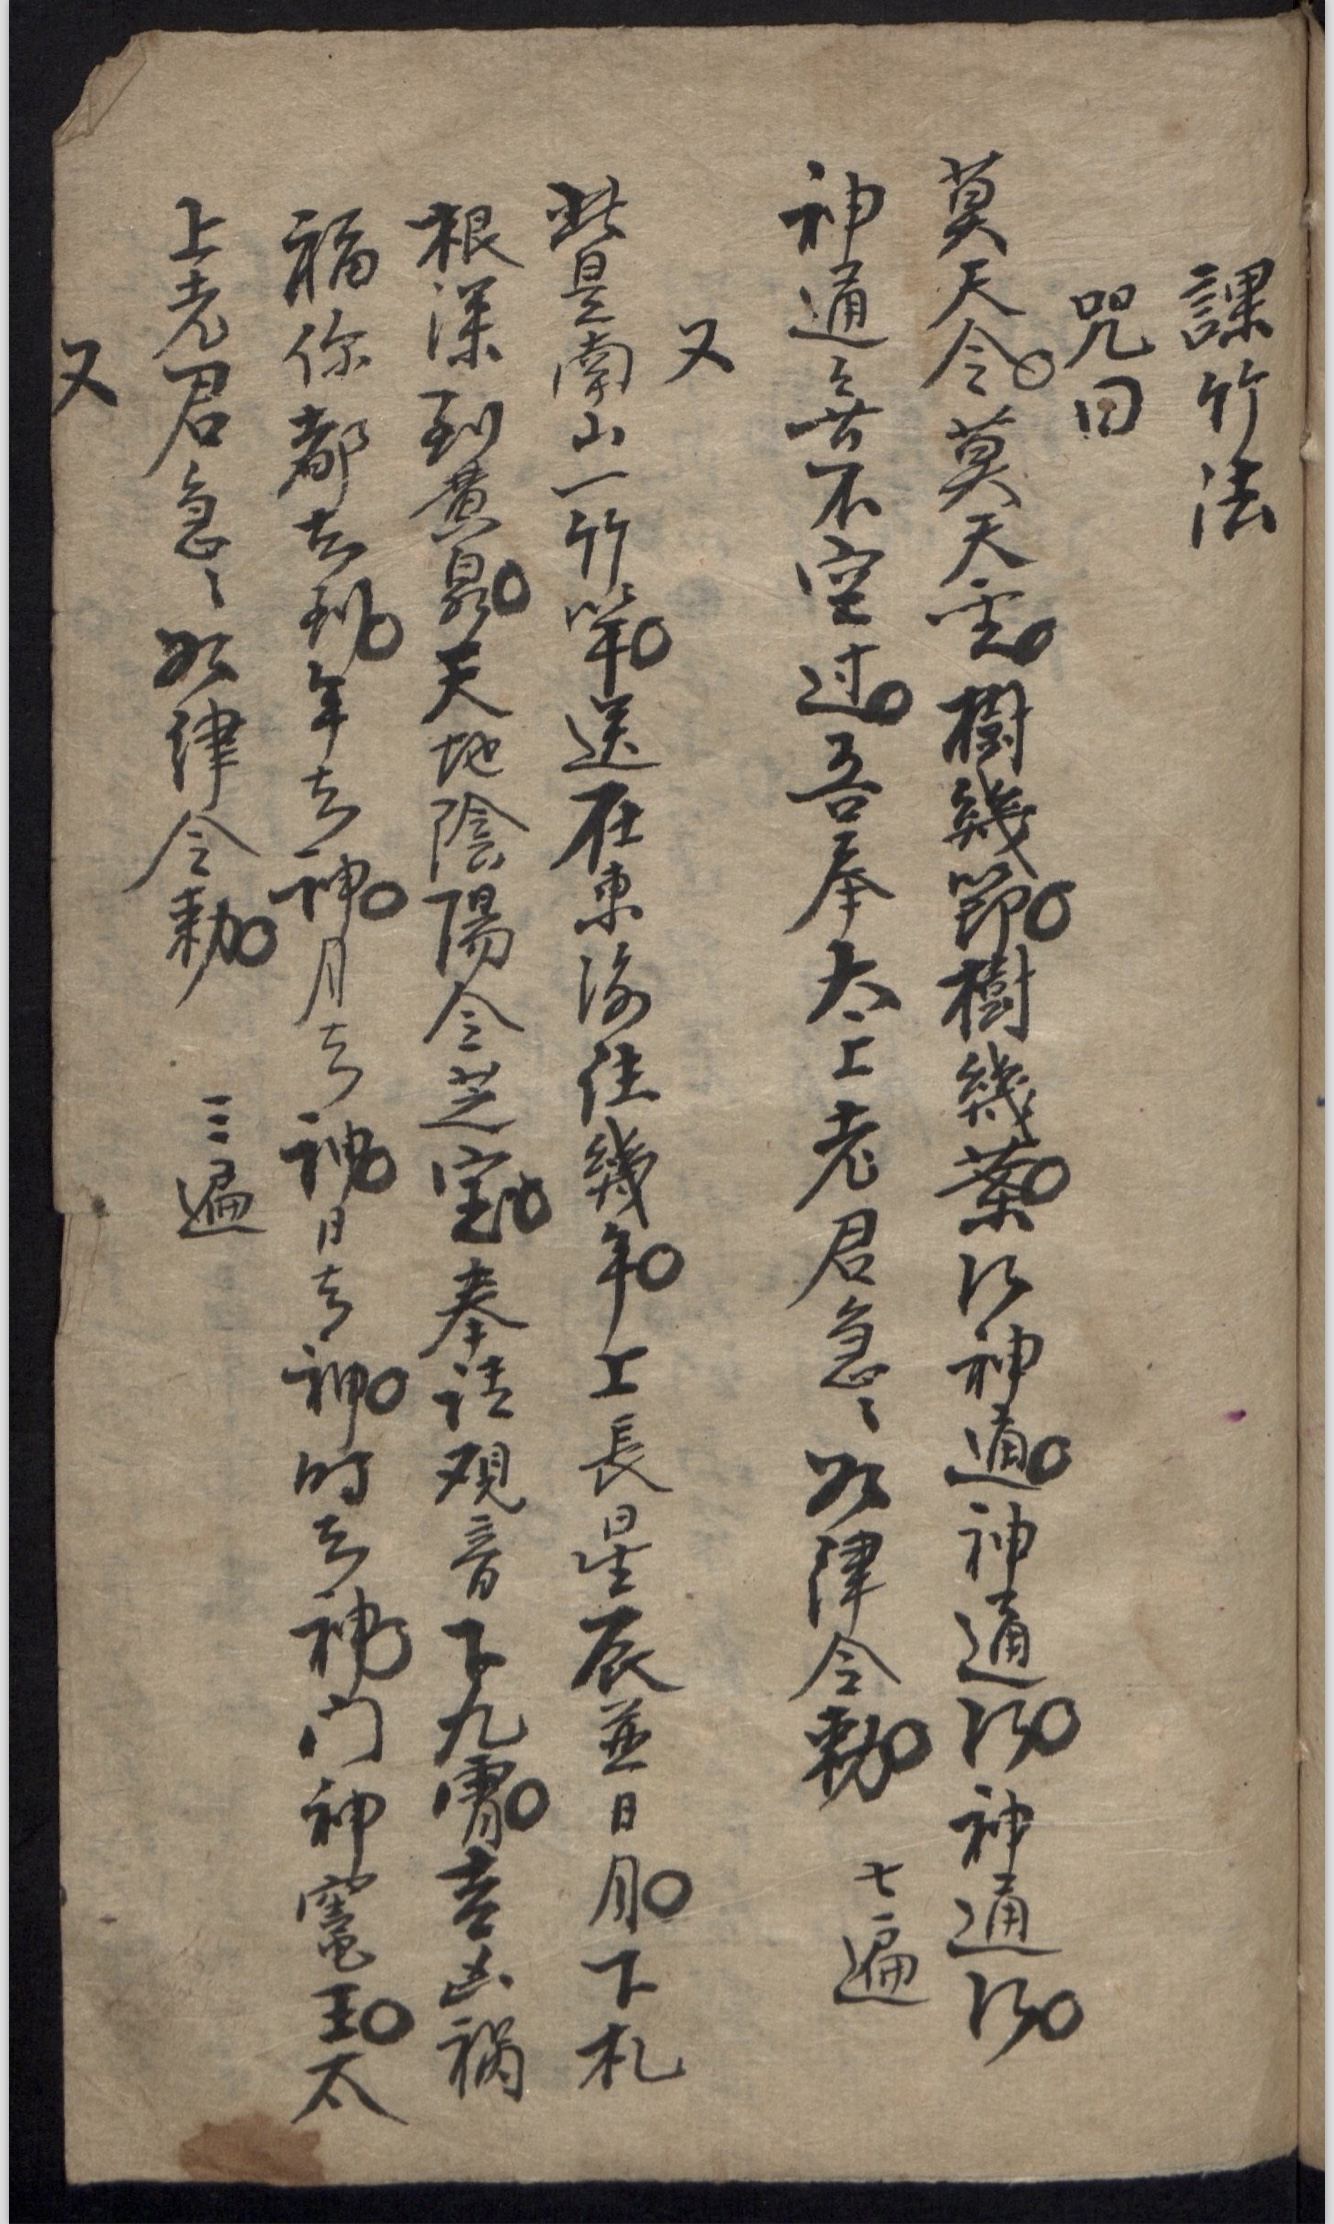 課竹法
咒曰
莫天令。莫天云。樹幾節。樹幾葉。神通。神通。神通。
神通々苦不空过。吾奉太上老君急々如律令勅。七遍
又
此是南山一竹竿。送在東海往幾年。上長星辰並日月。下札
根深到黄泉。天地陰陽令芝宝。奉請观音下九霄。吉凶禍
福你都去到。年去神。月去神。日去神。时去神。门神竈王。太
上老君急々如律令勅。三遍
又